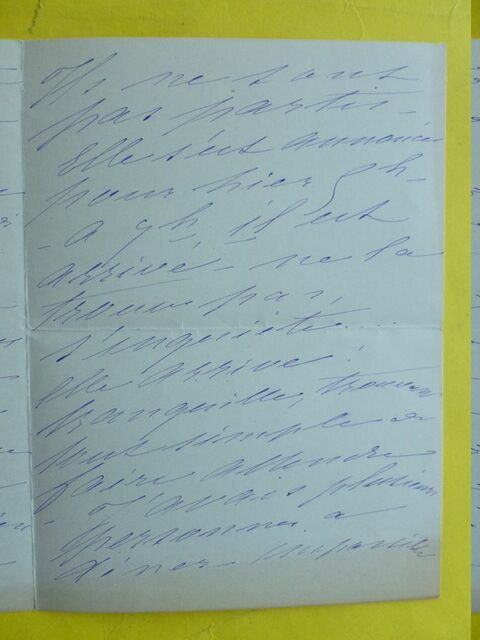 Ils ne sont
pas partis –
Elle s'est annoncée
pour hier 7 h –
– a 9 h, il est
arrivé – ne la
trouve pas,
s'inquiète...
Elle arrive!
tranquille, trouvan
tout simple de
faire attendre
J'avais plusieurs
personnes a
diner –